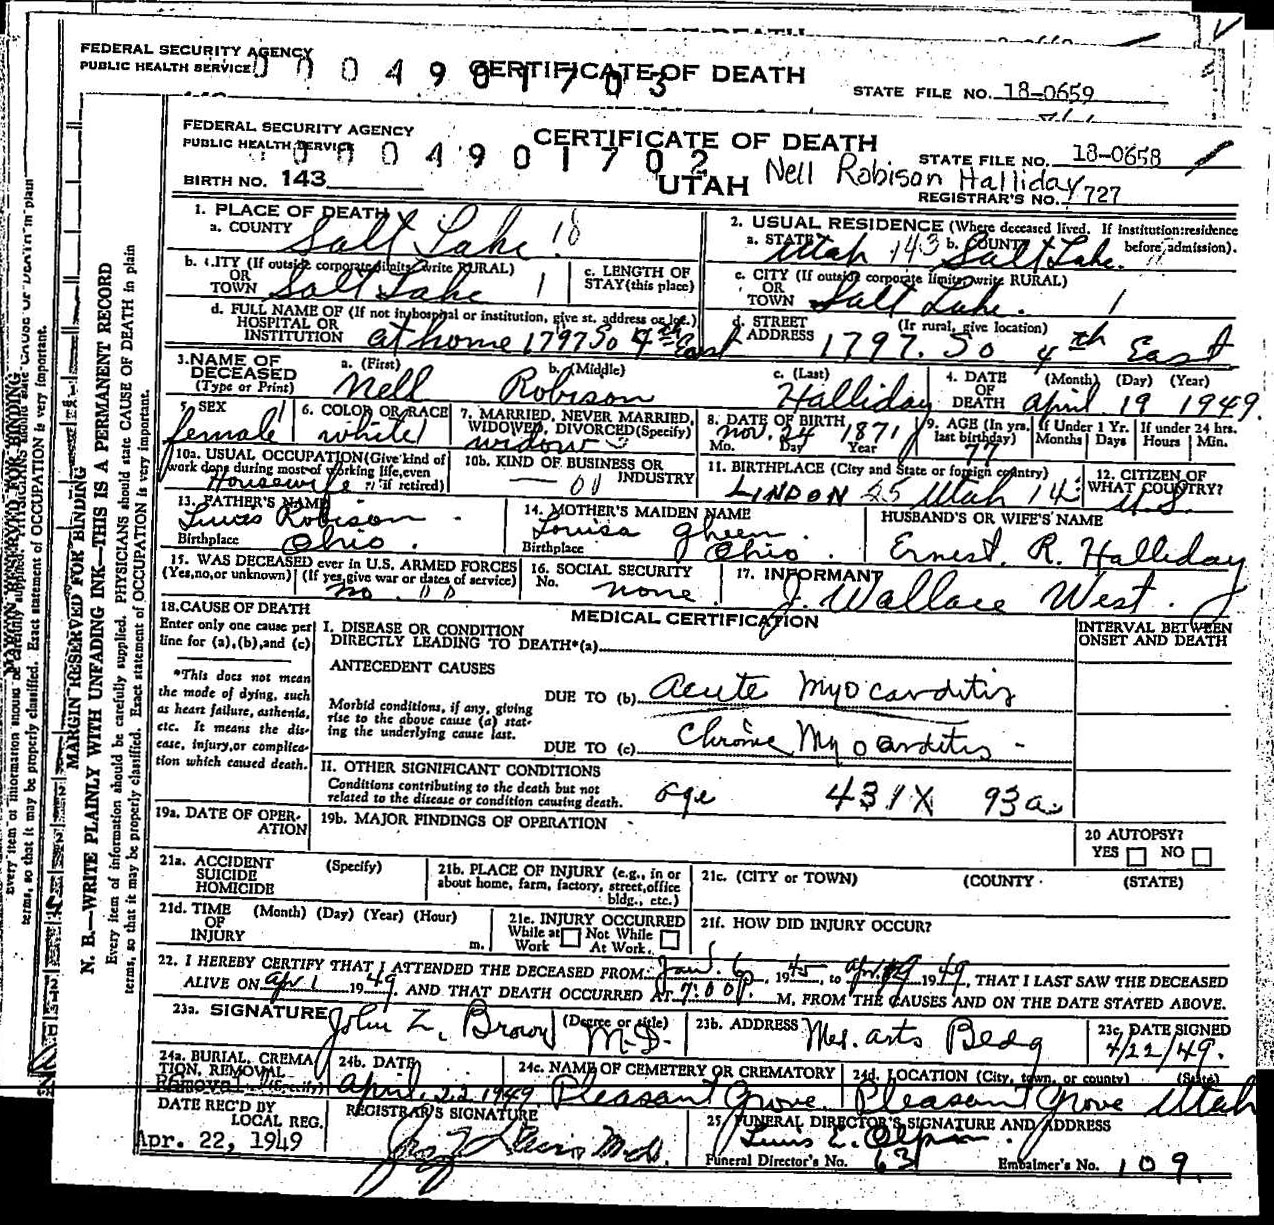 FEDERAL SECURITY AGENCY
PUBLIC HEALTH SERVICE
CERTIFICATE OF DEATH
STATE FILE NO. 18-0659
FEDERAL SECURITY AGENCY
PUBLIC HEALTH SERVICE
CERTIFICATE OF DEATH
STATE FILE NO. 18-0658
0004901702
BIRTH NO. 143
UTAH
Nell Robison Halliday
REGISTRAR'S NO. 727
1. PLACE OF DEATH
a. COUNTY Salt Lake 18
2. USUAL RESIDENCE (Where deceased lived. If institution:residence before admission).
a. STATE Utah 143 b. COUNTY Salt Lake.
b. CITY (If outside corporate limits, write RURAL)
OR
TOWN Salt Lake 1
c. LENGTH OF
STAY (this place)
c. CITY (If outside corporate limits, write RURAL)
OR
TOWN Salt Lake. 1
d. FULL NAME OF (If not in hospital or institution, give st. address or loc.)
HOSPITAL OR
INSTITUTION at home 1797 So 4th East
d. STREET (If rural, give location)
ADDRESS 1797. So 4th East
3. NAME OF
DECEASED
(Type or Print)
a. (First) Nell
b. (Middle) Robison
c. (Last) Halliday
4. DATE (Month) (Day) (Year)
OF
DEATH April 19 1949.
5. SEX
female
6. COLOR OR RACE
white
7. MARRIED, NEVER MARRIED,
WIDOWED, DIVORCED (Specify)
widow
8. DATE OF BIRTH
Nov. 24 1871
Mo. Day Year
9. AGE (In yrs. last birthday)
77
If Under 1 Yr.
Months Days
If under 24 hrs.
Hours Min.
10a. USUAL OCCUPATION (Give kind of
work done during most of working life, even
if retired)
Housewife
10b. KIND OF BUSINESS OR
INDUSTRY
11. BIRTHPLACE (City and State or foreign country)
LINDON 25 Utah 143
12. CITIZEN OF
WHAT COUNTRY?
U.S.
13. FATHER'S NAME
Lewis Robison
Birthplace Ohio.
14. MOTHER'S MAIDEN NAME
Louisa Gheen
Birthplace Ohio.
HUSBAND'S OR WIFE'S NAME
Ernest. R. Halliday
15. WAS DECEASED ever in U.S. ARMED FORCES
(Yes, no, or unknown) (If yes, give war or dates of service)
no.
16. SOCIAL SECURITY
No. none.
17. INFORMANT
J. Wallace West.
18. CAUSE OF DEATH
Enter only one cause per
line for (a), (b), and (c)
*This does not mean
the mode of dying, such
as heart failure, asthenia,
etc. It means the dis-
ease, injury, or complica-
tion which caused death.
MEDICAL CERTIFICATION
INTERVAL BETWEEN
ONSET AND DEATH
I. DISEASE OR CONDITION
DIRECTLY LEADING TO DEATH*(a)
ANTECEDENT CAUSES
Morbid conditions, if any, giving
rise to the above cause (a) stat-
ing the underlying cause last.
DUE TO (b) Acute Myocarditis
DUE TO (c) Chronic Myocarditis
II. OTHER SIGNIFICANT CONDITIONS
Conditions contributing to the death but not
related to the disease or condition causing death.
age 431X 93a
19a. DATE OF OPER-
ATION
19b. MAJOR FINDINGS OF OPERATION
20 AUTOPSY?
YES NO
21a. ACCIDENT
SUICIDE
HOMICIDE
(Specify)
21b. PLACE OF INJURY (e.g., in or
about home, farm, factory, street, office
bldg., etc.)
21c. (CITY or TOWN) (COUNTY) (STATE)
21d. TIME (Month) (Day) (Year) (Hour)
OF
INJURY m.
21e. INJURY OCCURRED
While at Work Not While At Work.
21f. HOW DID INJURY OCCUR?
22. I HEREBY CERTIFY THAT I ATTENDED THE DECEASED FROM Jan. 6, 1945, to Apr. 19 1949, THAT I LAST SAW THE DECEASED
ALIVE ON Apr 1 1949. AND THAT DEATH OCCURRED AT 7:00 p. M, FROM THE CAUSES AND ON THE DATE STATED ABOVE.
23a. SIGNATURE (Degree or title)
John Z. Brown M.D.
23b. ADDRESS
Med. Arts Bldg
23c. DATE SIGNED
4/22/49.
24a. BURIAL, CREMA
TION, REMOVAL
(Specify)
Removal
24b. DATE
April. 22 1949
24c. NAME OF CEMETERY OR CREMATORY
Pleasant Grove.
24d. LOCATION (City, town, or county) (State)
Pleasant Grove Utah
DATE REC'D BY
LOCAL REG.
Apr. 22, 1949
REGISTRAR'S SIGNATURE
25. FUNERAL DIRECTOR'S SIGNATURE AND ADDRESS
Funeral Director's No. 63
Embalmer's No. 109.
MARGIN RESERVED FOR BINDING
N. B.—WRITE PLAINLY WITH UNFADING INK—THIS IS A PERMANENT RECORD
Every item of information should be carefully supplied. PHYSICIANS should state CAUSE OF DEATH in plain
terms, so that it may be properly classified. Exact statement of OCCUPATION is very important.